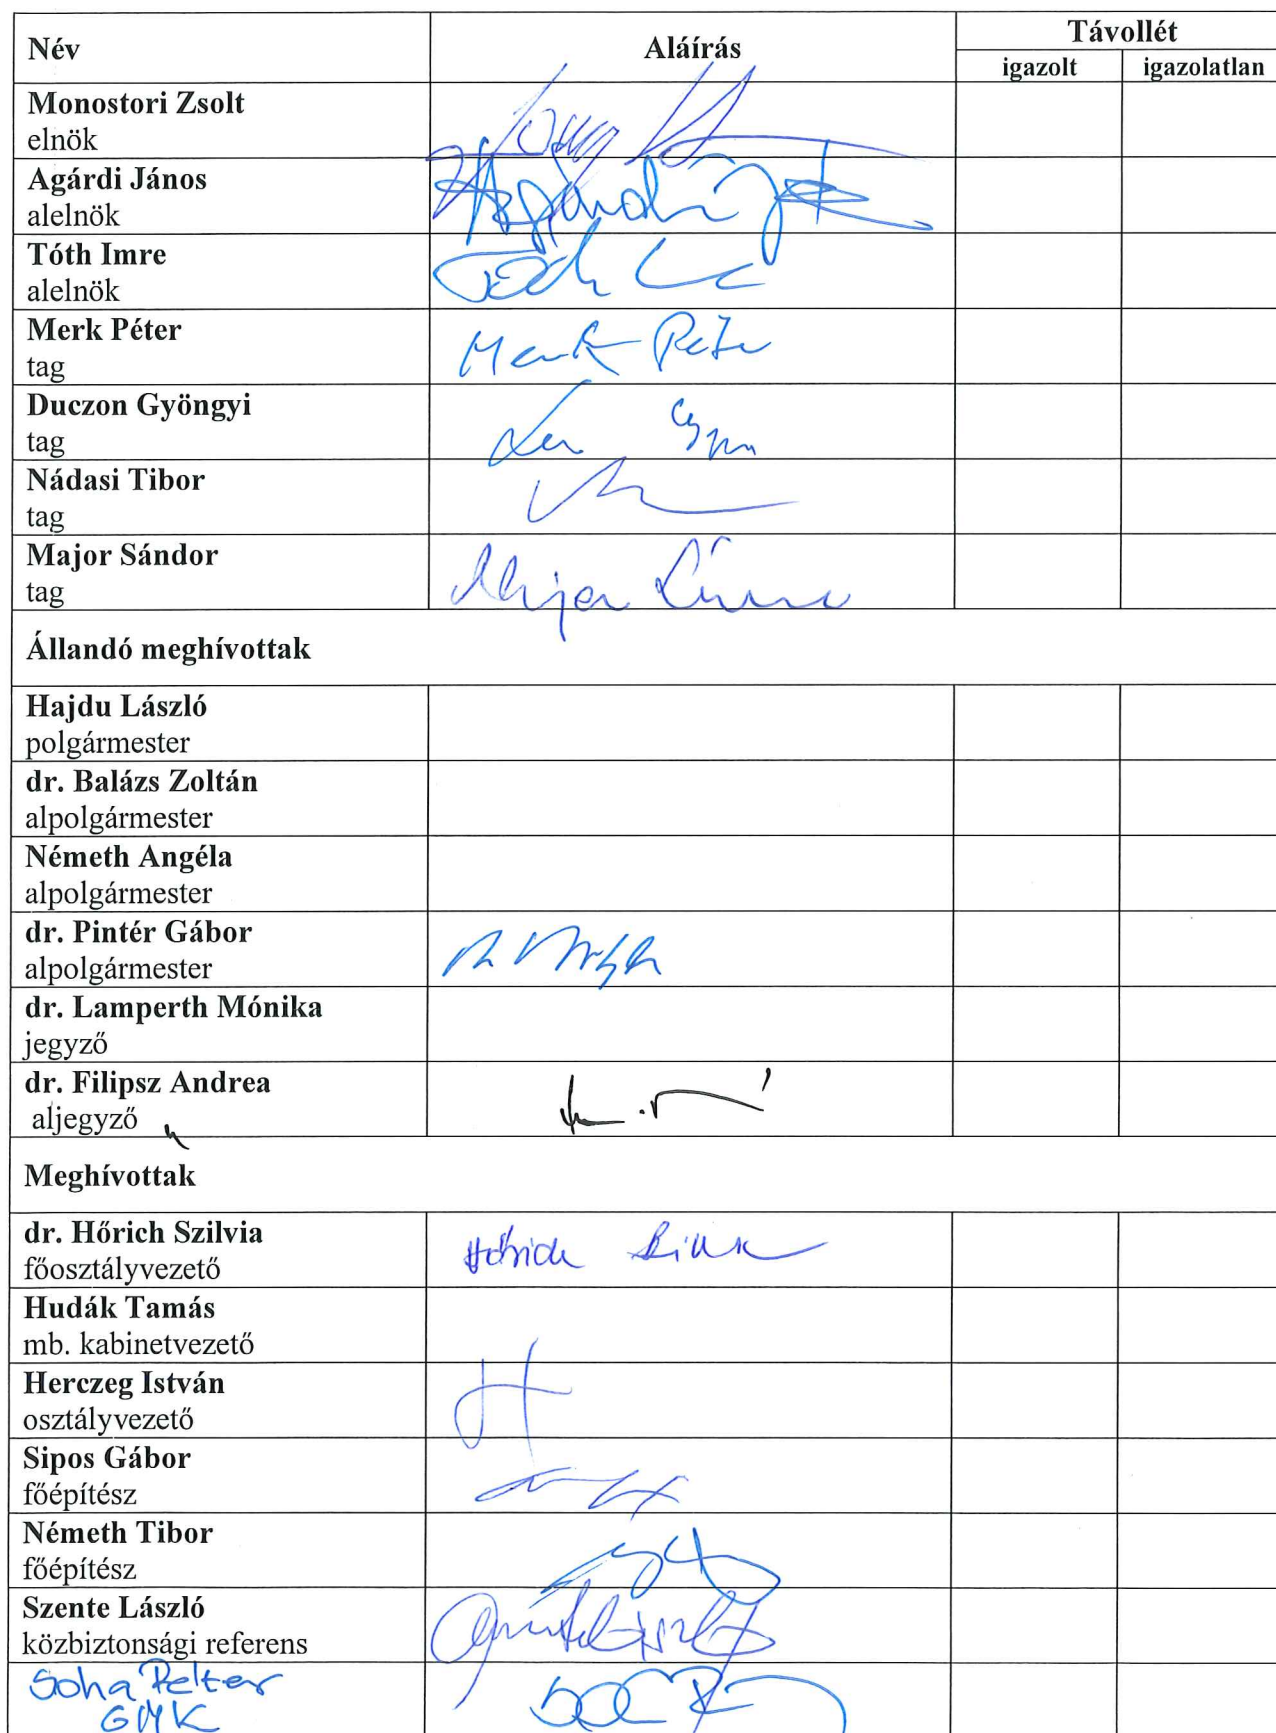 Név Aláírás Távollét
igazolt igazolatlan
Monostori Zsolt
elnök
Agárdi János
alelnök
Tóth Imre
alelnök
Merk Péter Merk Péter
tag
Duczon Gyöngyi
tag
Nádasi Tibor
tag
Major Sándor
tag
Állandó meghívottak
Hajdu László
polgármester
dr. Balázs Zoltán
alpolgármester
Németh Angéla
alpolgármester
dr. Pintér Gábor
alpolgármester
dr. Lamperth Mónika
jegyző
dr. Filipsz Andrea
aljegyző
Meghívottak
dr. Hőrich Szilvia
főosztályvezető
Hudák Tamás
mb. kabinetvezető
Herczeg István
osztályvezető
Sipos Gábor
főépítész
Németh Tibor
főépítész
Szente László
közbiztonsági referens
Soha Pelter
GMK